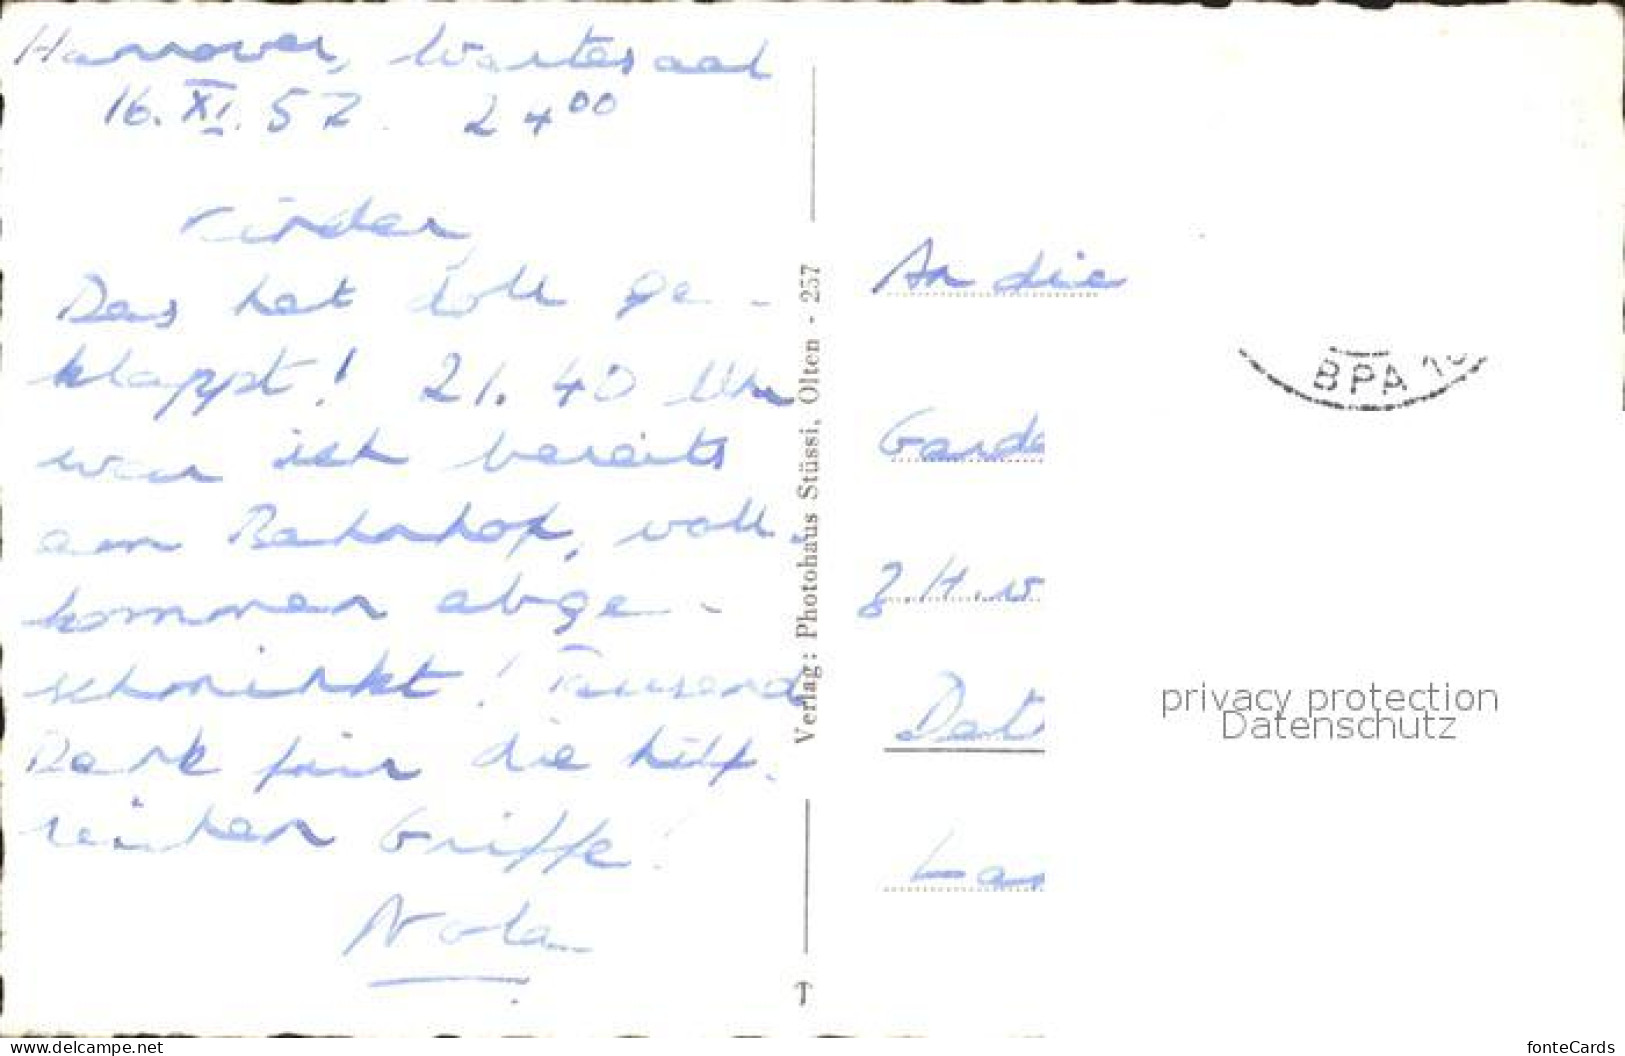 Hannover, Wartesaal
16. XI. 57. 24⁰⁰
Kinder,
Das hat toll ge-
klappt! 21.40 Uhr
war ich bereits
am Bahnhof, voll-
kommen abge-
schminkt! Tausend
Dank für die hilf-
reichen Griffe!
Nola
Verlag: Photohaus Stüssi, Olten - 257
An die
Garde
z.H.v
Det
La
BPA
privacy protection
Datenschutz
www.delcampe.net
fonteCards